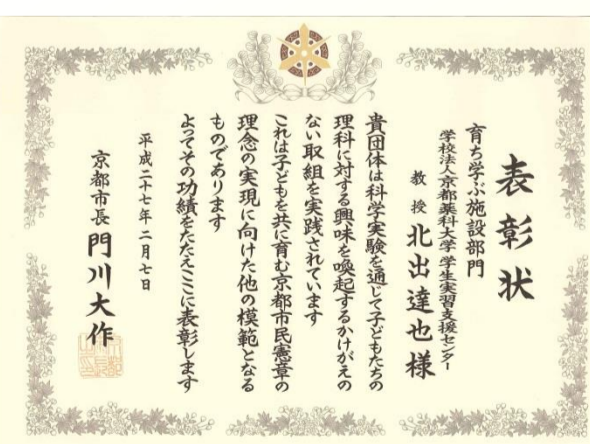 表彰状
育ち学ぶ施設部門
学校法人京都薬科大学 学生実習支援センター
教授 北出達也様
貴団体は科学実験を通じて子どもたちの
理科に対する興味を喚起するかけがえの
ない取組を実践されています
これは子どもを共に育む京都市民憲章の
理念の実現に向けた他の模範となる
ものであります
よってその功績をたたえここに表彰します
平成二十七年二月七日
京都市長 門川大作